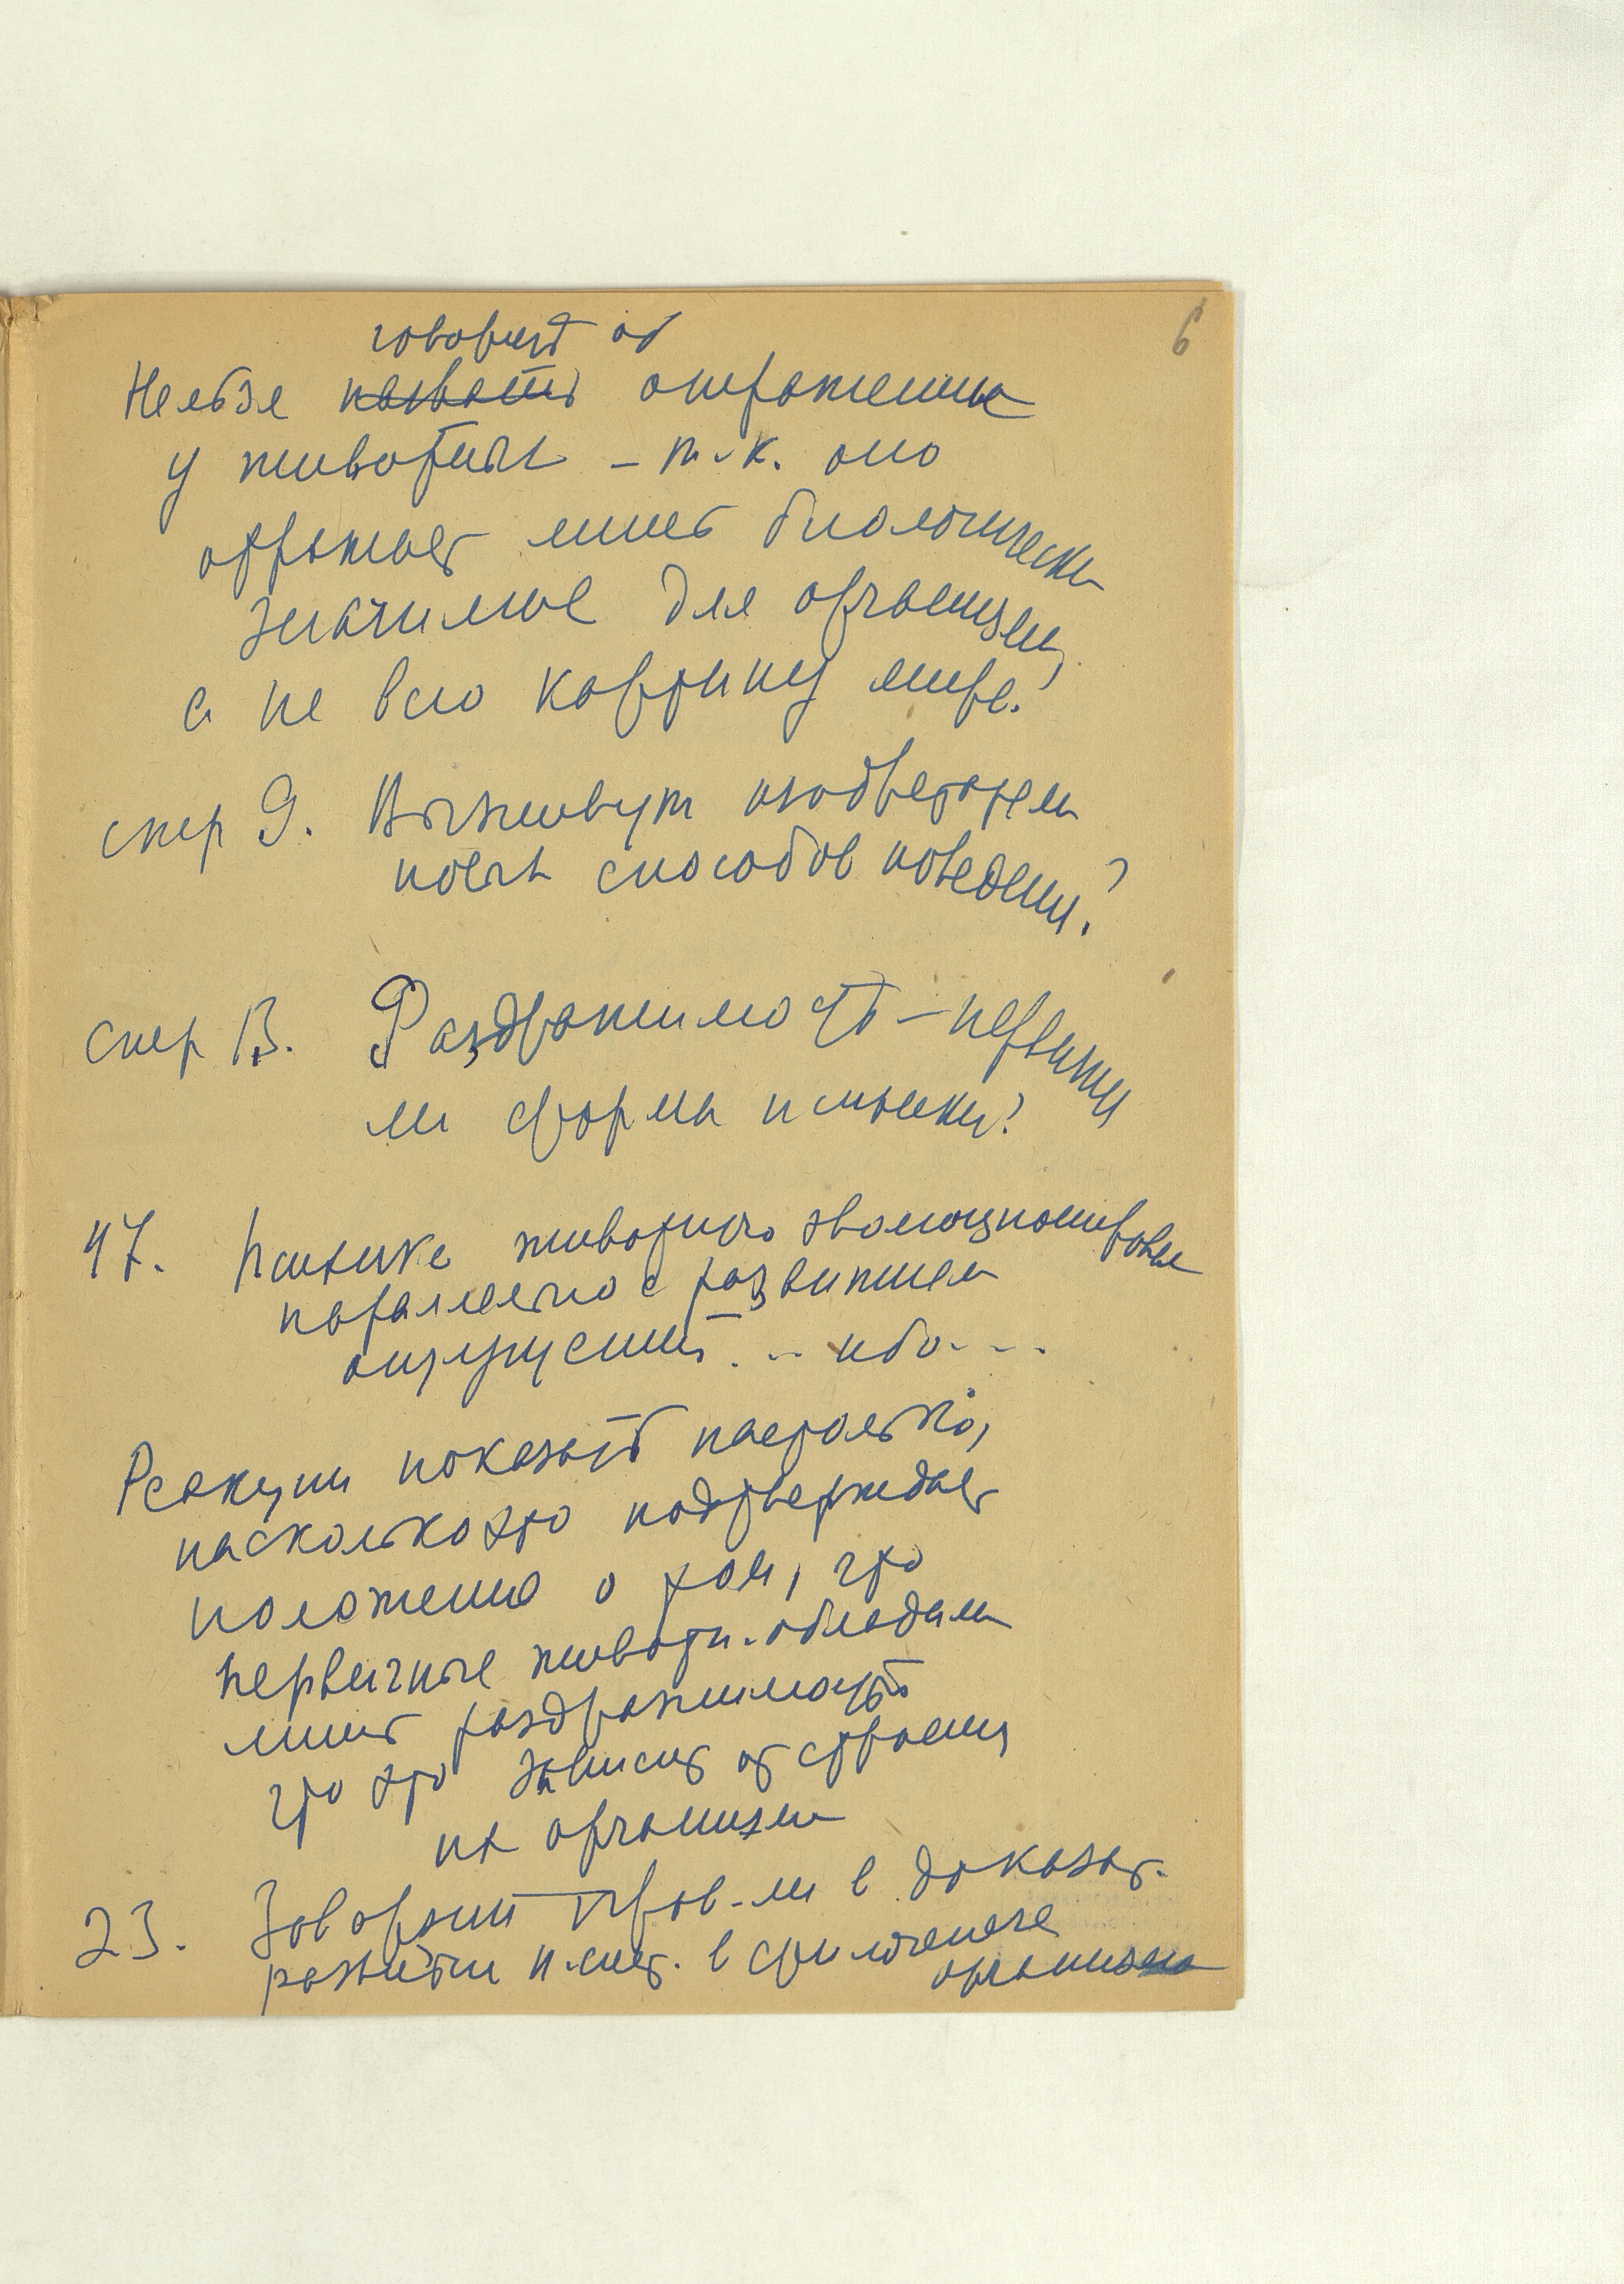 6
говорить об
Нельзя назвать отражением
у животных – т.к. оно
отражает лишь биологически
значимое для организма,
а не всю картину мира.
9. Выживут
новых способов поведения?
В. Раздражимость – первична
ли форма психики?
47. Психика животного эволюционировала
параллельно с развитием
ощущений... ибо....
Реакции показать настолько,
насколько это подтверждает
положение о том, что
первичные животн. обладали
лишь раздражимостью
что это зависит от строения
их организма
23. Говорит в доказат.
развития в филогенезе
организма